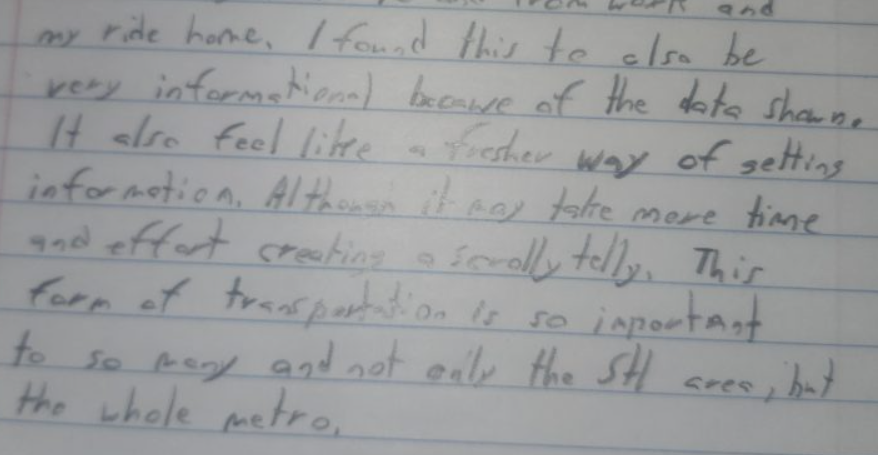 from work and
my ride home. I found this to also be
very informational because of the data shown.
It also feel like a fresher way of getting
information. Although it may take more time
and effort creating a scrolly telly. This
form of transportation is so inportant
to so many and not only the Stl area, but
the whole metro.